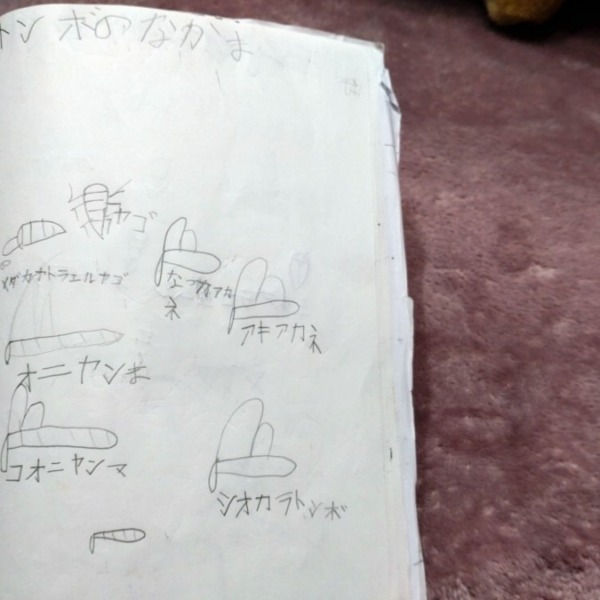 トンボのなかま
ヤゴ
メダカオトラエルヤゴ
なつアカ
ネ
アキアカネ
オニヤンま
コオニヤンマ
シオカラトンボ